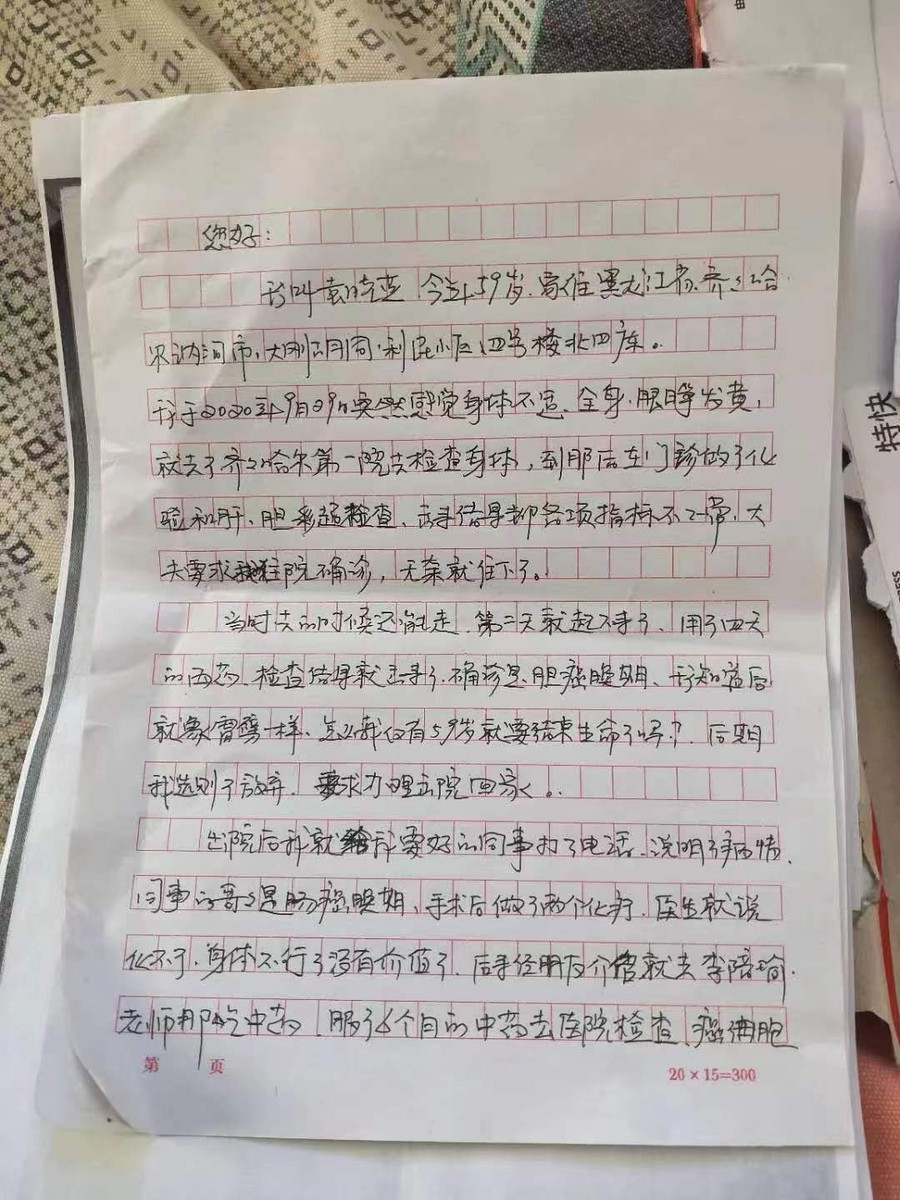 您好:
我叫 今年59岁.家住黑龙江省.齐々哈
尔讷河市. 胡同.利民小区.四号楼北四库。
我于2020年9月29日突然感觉身体不适、全身.眼睁发黄,
就去了齐々哈尔第一院去检查身体,到那后在门診做了化
验和肝、胆彩超检查、出来结果都各项指标不正常、大
夫要求我住院不确诊,无奈就住下了。
当时去的时候还能走.第二天就起不来了、用了四天
的西药.检查结果就出来了.确诊是.胆癌晚期、我知道后
就象雷霹一样、怎么我仅有59岁就要结束生命了吗?.后期
我选则了放弃.要求办理出院回家。.
出院后我就给我要好的同事打了电话.说明了病情.
同事的哥々是肠癌晚期、手术后做了两个化疗.医生就说
化不了.身体不行了没有价值了.后来经朋友介绍就去李陪瑜.
老师那吃中药.服了 个月的中药去医院检查.癌细胞
第 页
20×15=300
特快